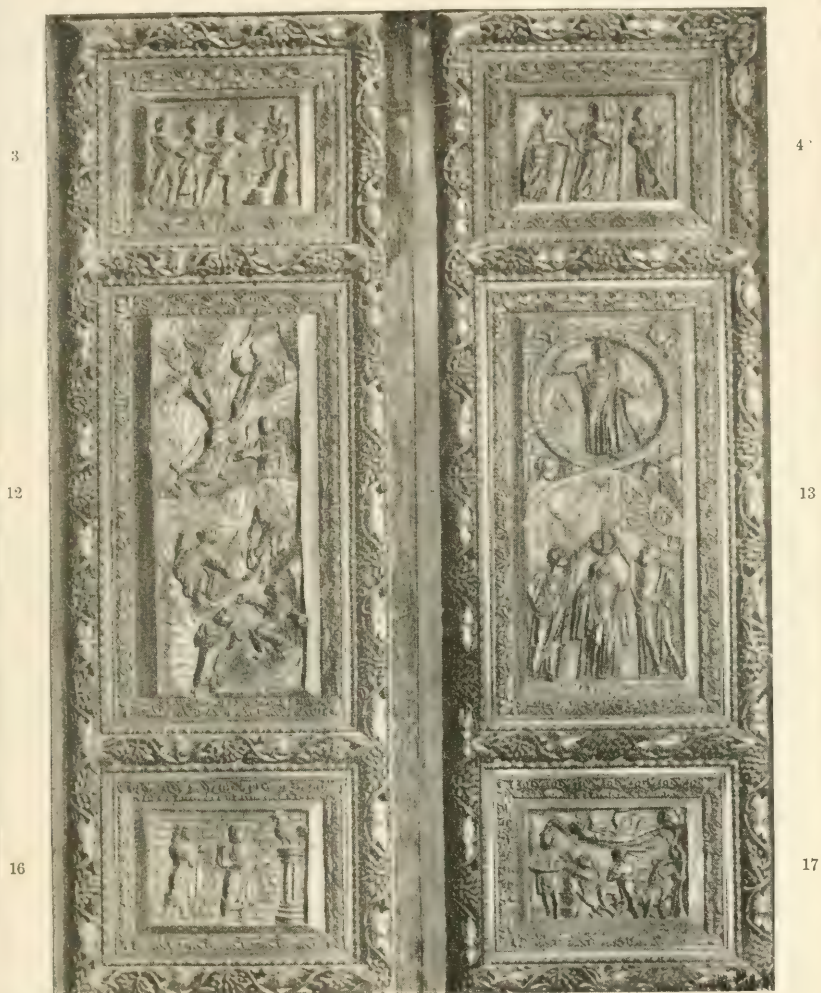 3
4
12
13
16
17